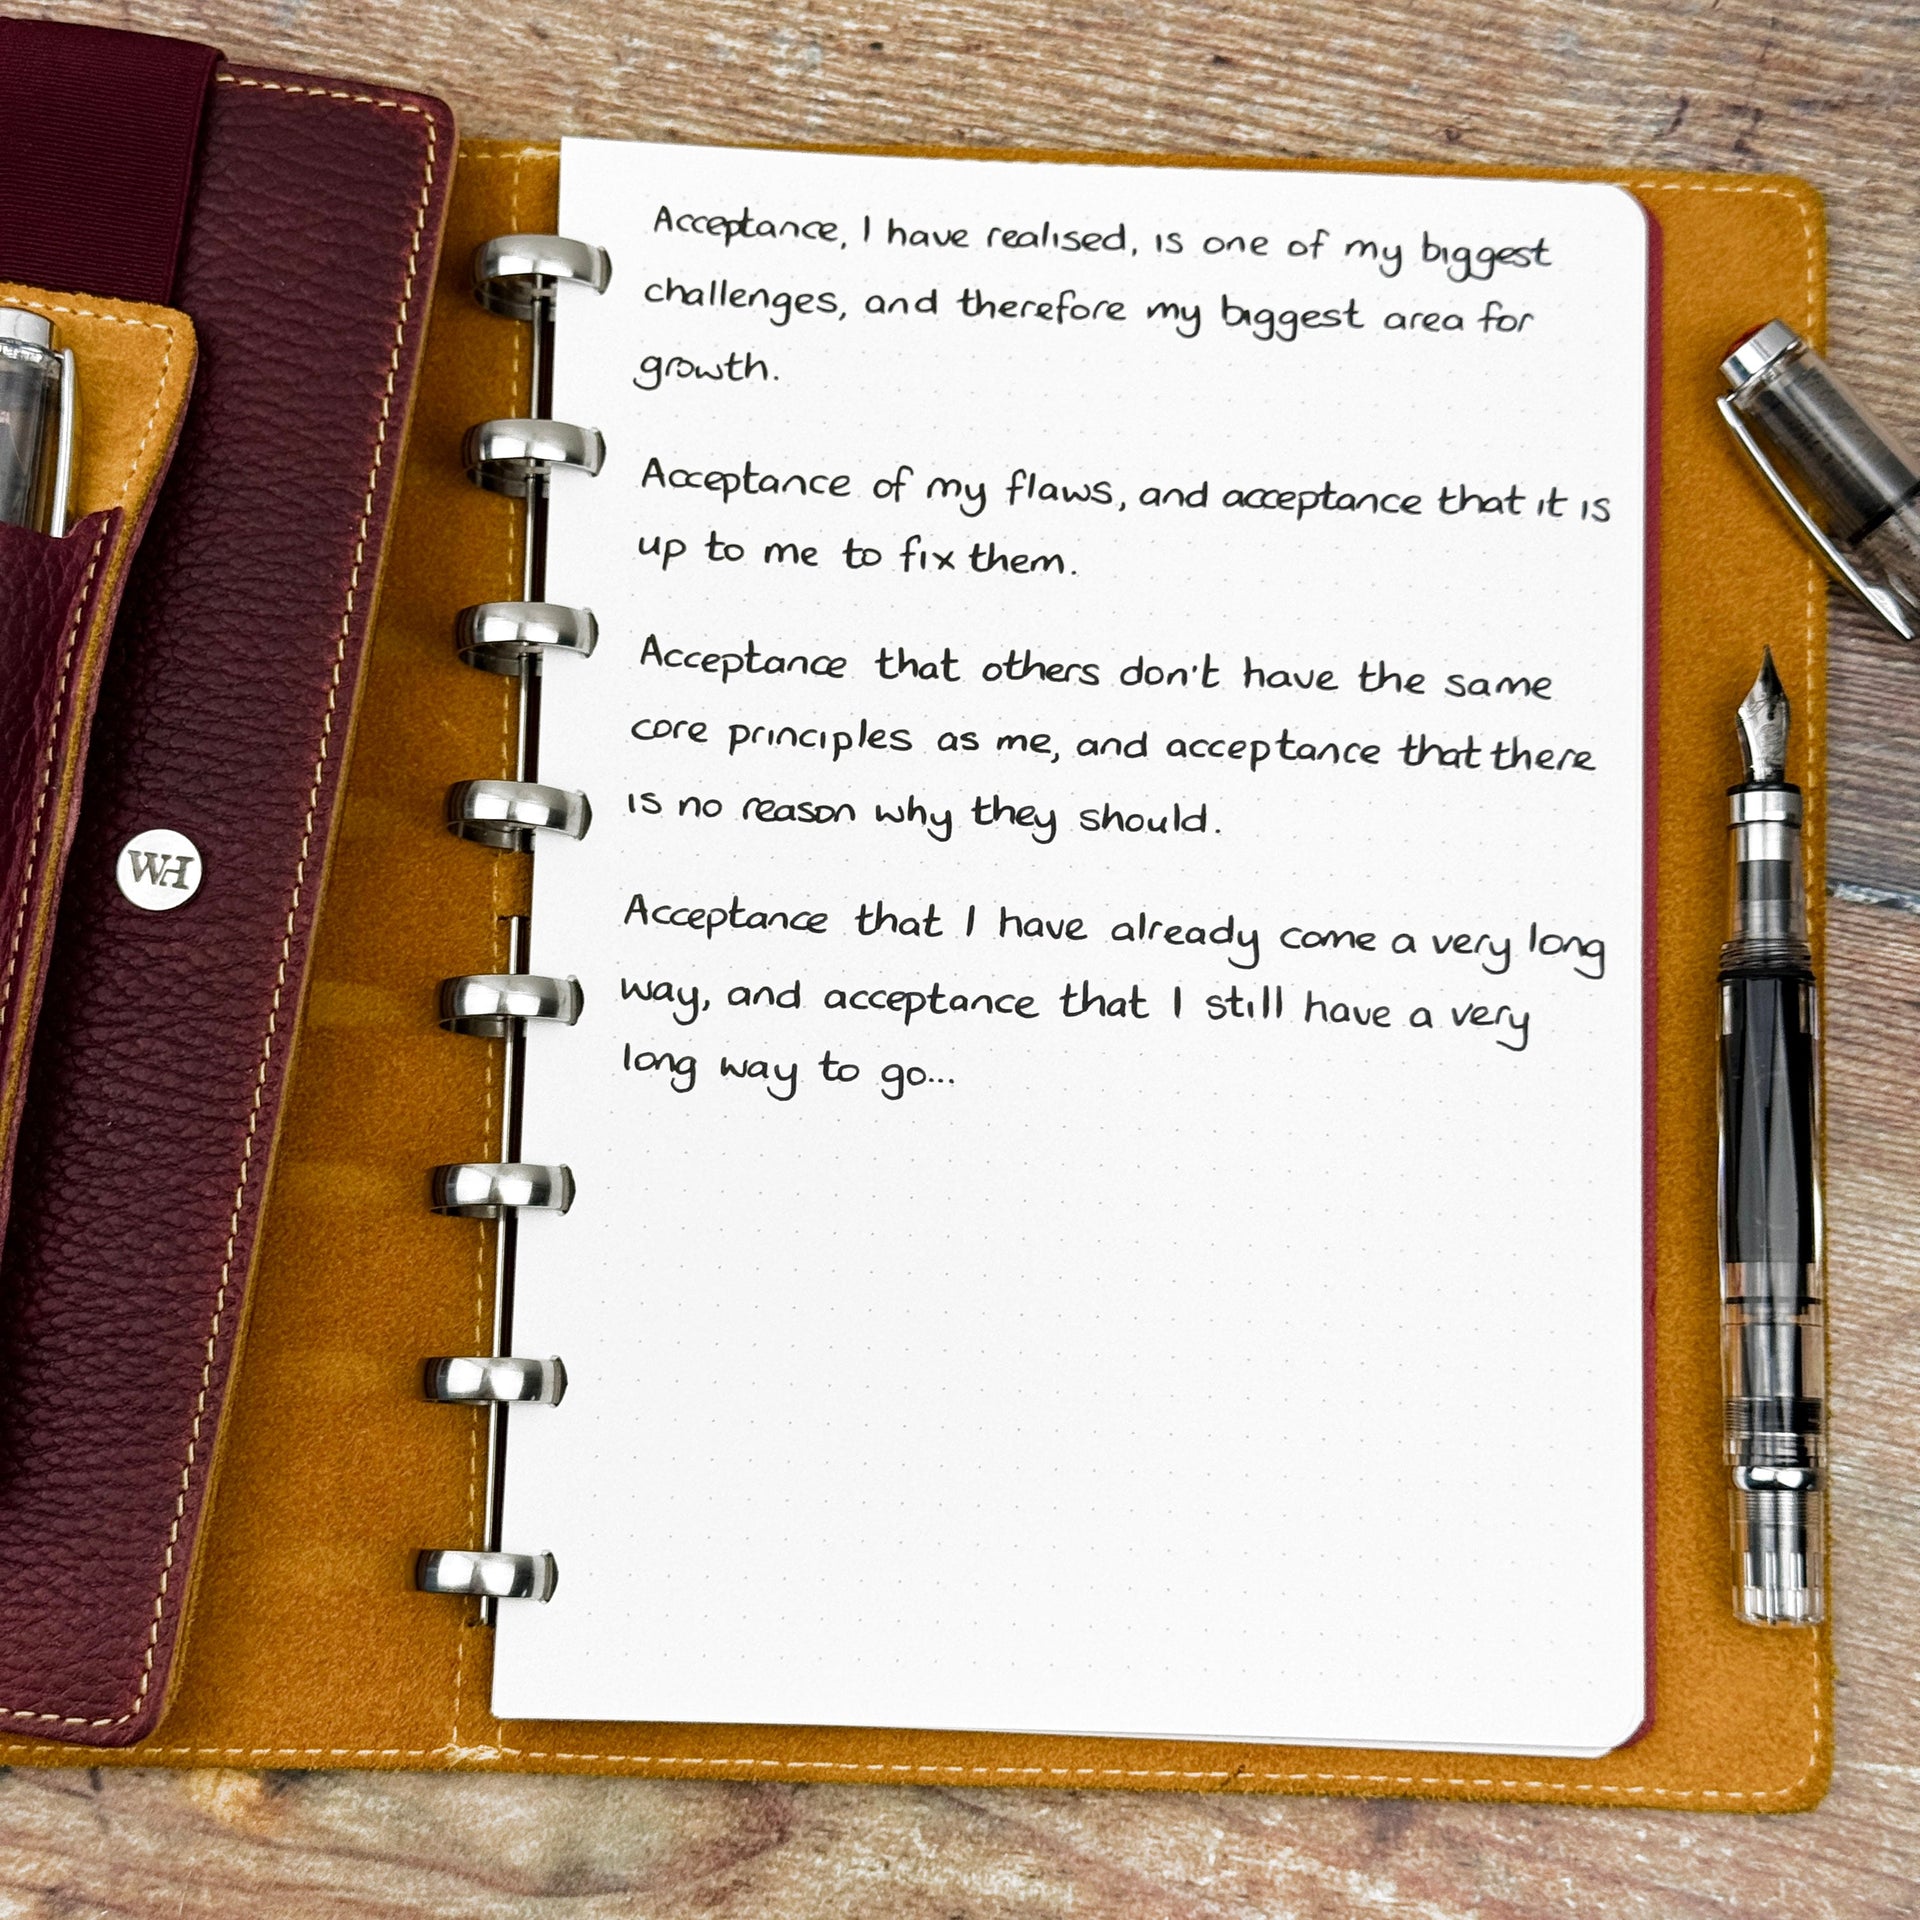 Acceptance, I have realised, is one of my biggest
challenges, and therefore my biggest area for
growth.
Acceptance of my flaws, and acceptance that it is
up to me to fix them.
Acceptance that others don't have the same
core principles as me, and acceptance that there
is no reason why they should.
Acceptance that I have already come a very long
way, and acceptance that I still have a very
long way to go...
WH